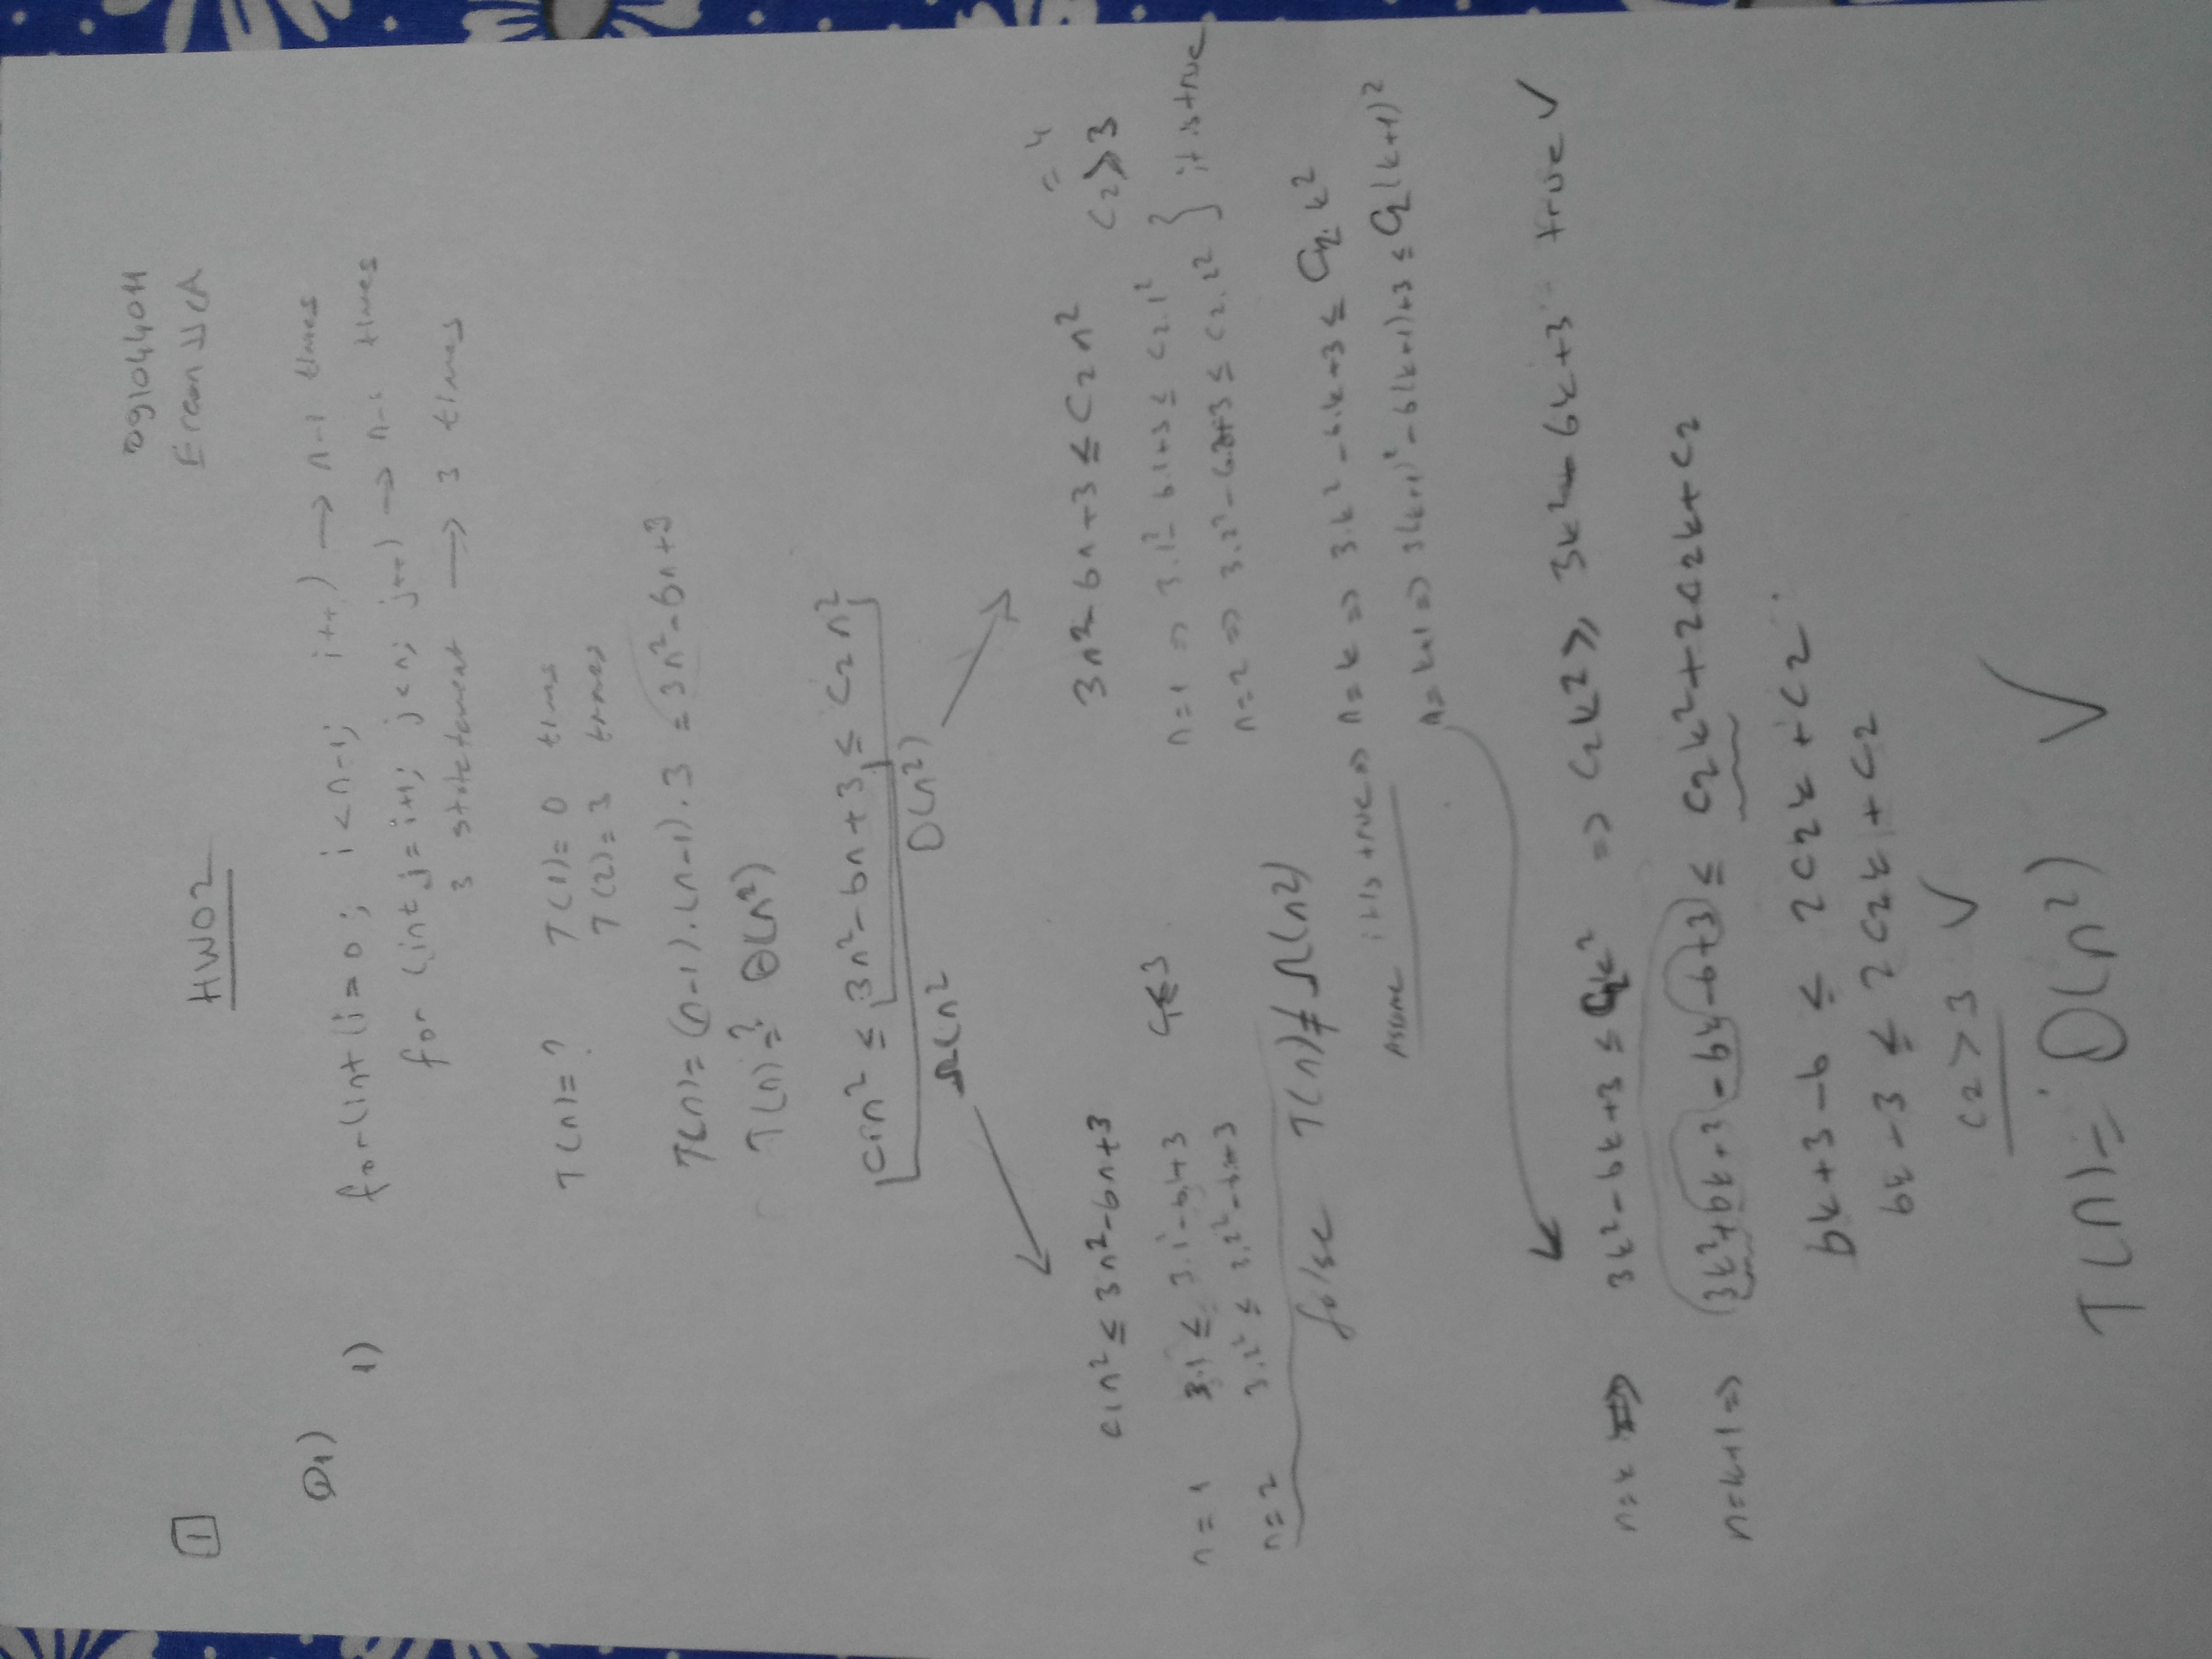 091044011
1
HW02
Q1)
1) for(int (i=0; i<n-1; i++) → n-1 times
for (int j=i+1; j<n; j++) → n-1 times
3 statetement → 3 times
T(n)=? T(1)= 0 tims
T(2)=3 times
T(n)= (n-1).(n-1).3 = 3n²-6n+3
T(n)=? Θ(n²)
c1n² ≤ 3n²-6n+3 ≤ c2n²
Ω(n² O(n²)
c1n² ≤ 3n²-6n+3
n=1 3.1 ≤ 3.1²-6.1+3
n=2 3.2² ≤ 3.2²-6.2+3
false T(n)≠Ω(n2)
3n²-6n+3 ≤ c2n² = 4
c2≥3
n=1 ⇒ 3.1²-6.1+3 ≤ c2.1²
n=2 ⇒ 3.2²-6.2+3 ≤ c2.2² } it is true
Assume it is true ⇒ n=k ⇒ 3.k²-6.k+3 ≤ C2.k²
n=k+1 ⇒ 3(k+1)²-6(k+1)+3 ≤ C2(k+1)²
n=k ⇒ 3k²-6k+3 ≤ C2k² ⇒ c2k² ≥ 3k²-6k+3 true ✓
n=k+1 ⇒ 3k²+6k+3-6k-6+3 ≤ c2k²+2c2k+c2
6k+3-6 ≤ 2c2k+c2
6k-3 ≤ 2c2k+c2
c2>3 ✓
T(n)= O(n²) ✓